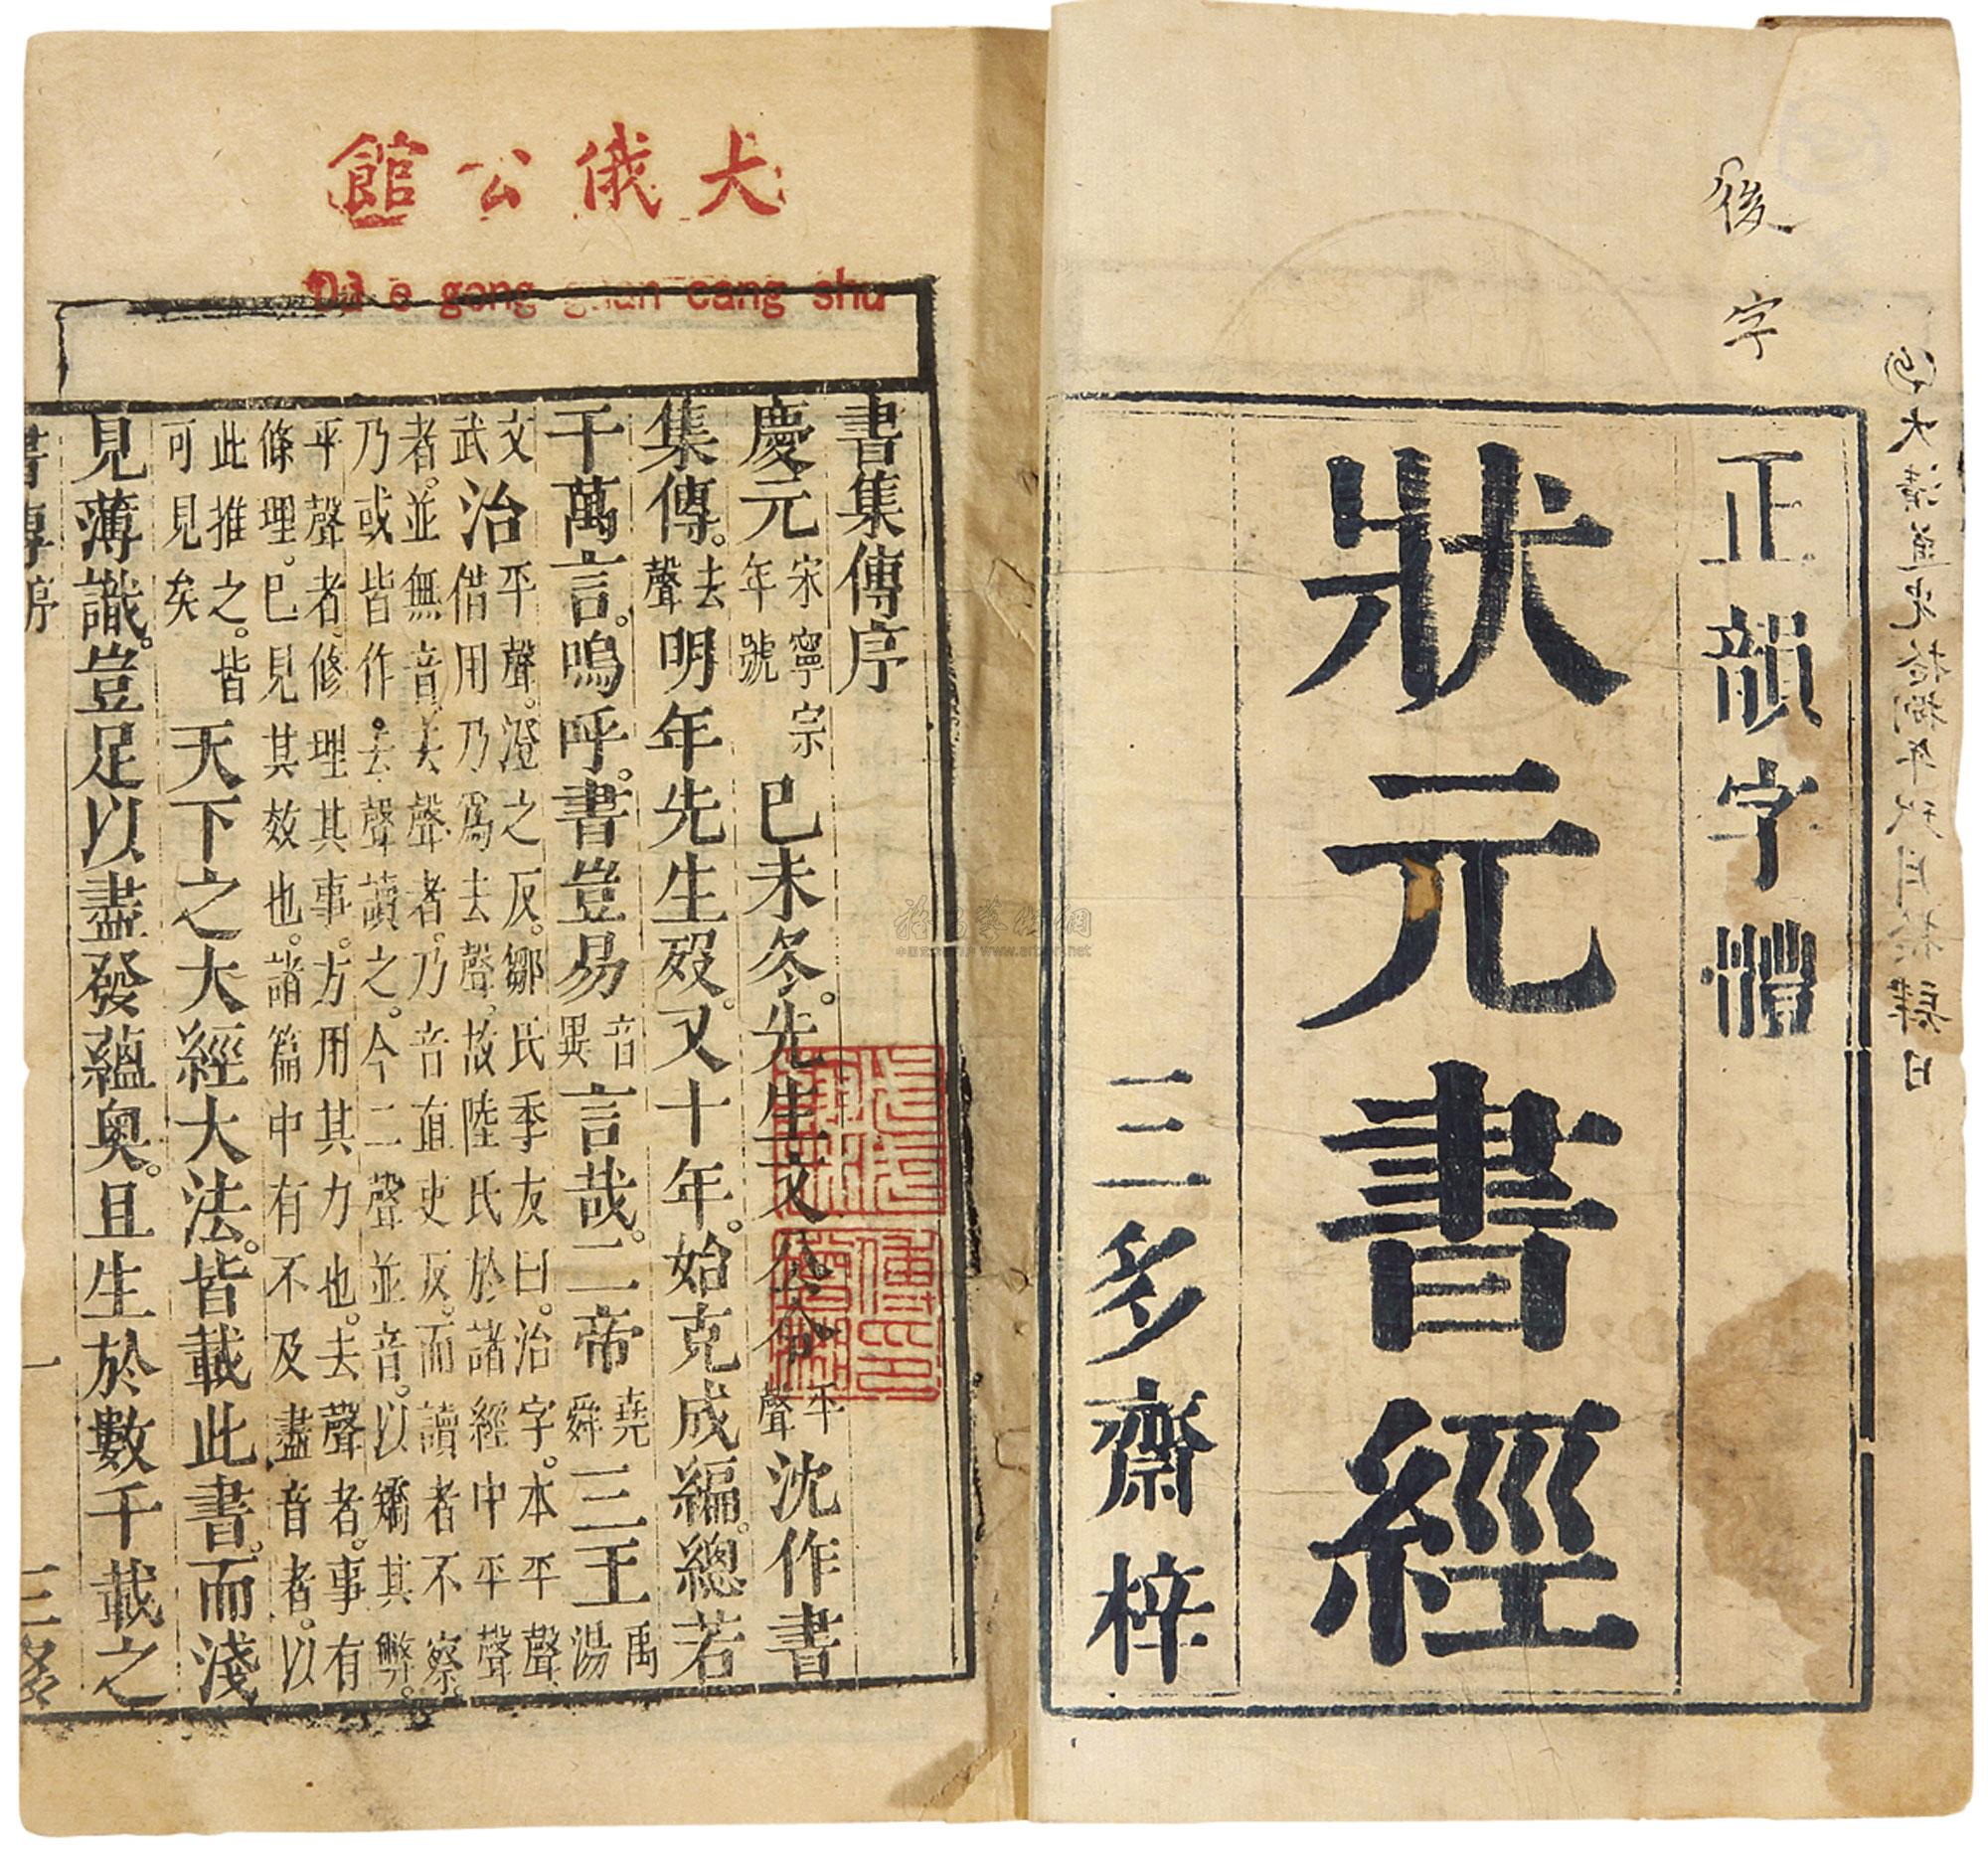 後字
正韻字體
狀元書經
三多齋梓
大俄公館
Da e gong guan cang shu
書集傳序
慶元宋寧宗年號已未冬。先生文公令平聲沈作書
集傳。去聲明年先生歿。又十年。始克成編。總若
干萬言。嗚呼。書豈易音異言哉。二帝堯舜三王禹湯
文武治平聲。澄之反。鄒氏季友曰。治字。本平聲借用乃爲去聲。故陸氏於諸經中平聲
者。並無音。去聲者。乃音直吏反。而讀者不察。乃或皆作。去聲讀之。今二聲並音。以矯其弊。
平聲者。修理其事。方用其力也。去聲者。事有條理。已見其效也。諸篇中有不及盡音者。以
此推之。皆可見矣天下之大經大法。皆載此書。而淺
見薄識。豈足以盡發蘊奧。且生於數千載之
書傳序
一
三多